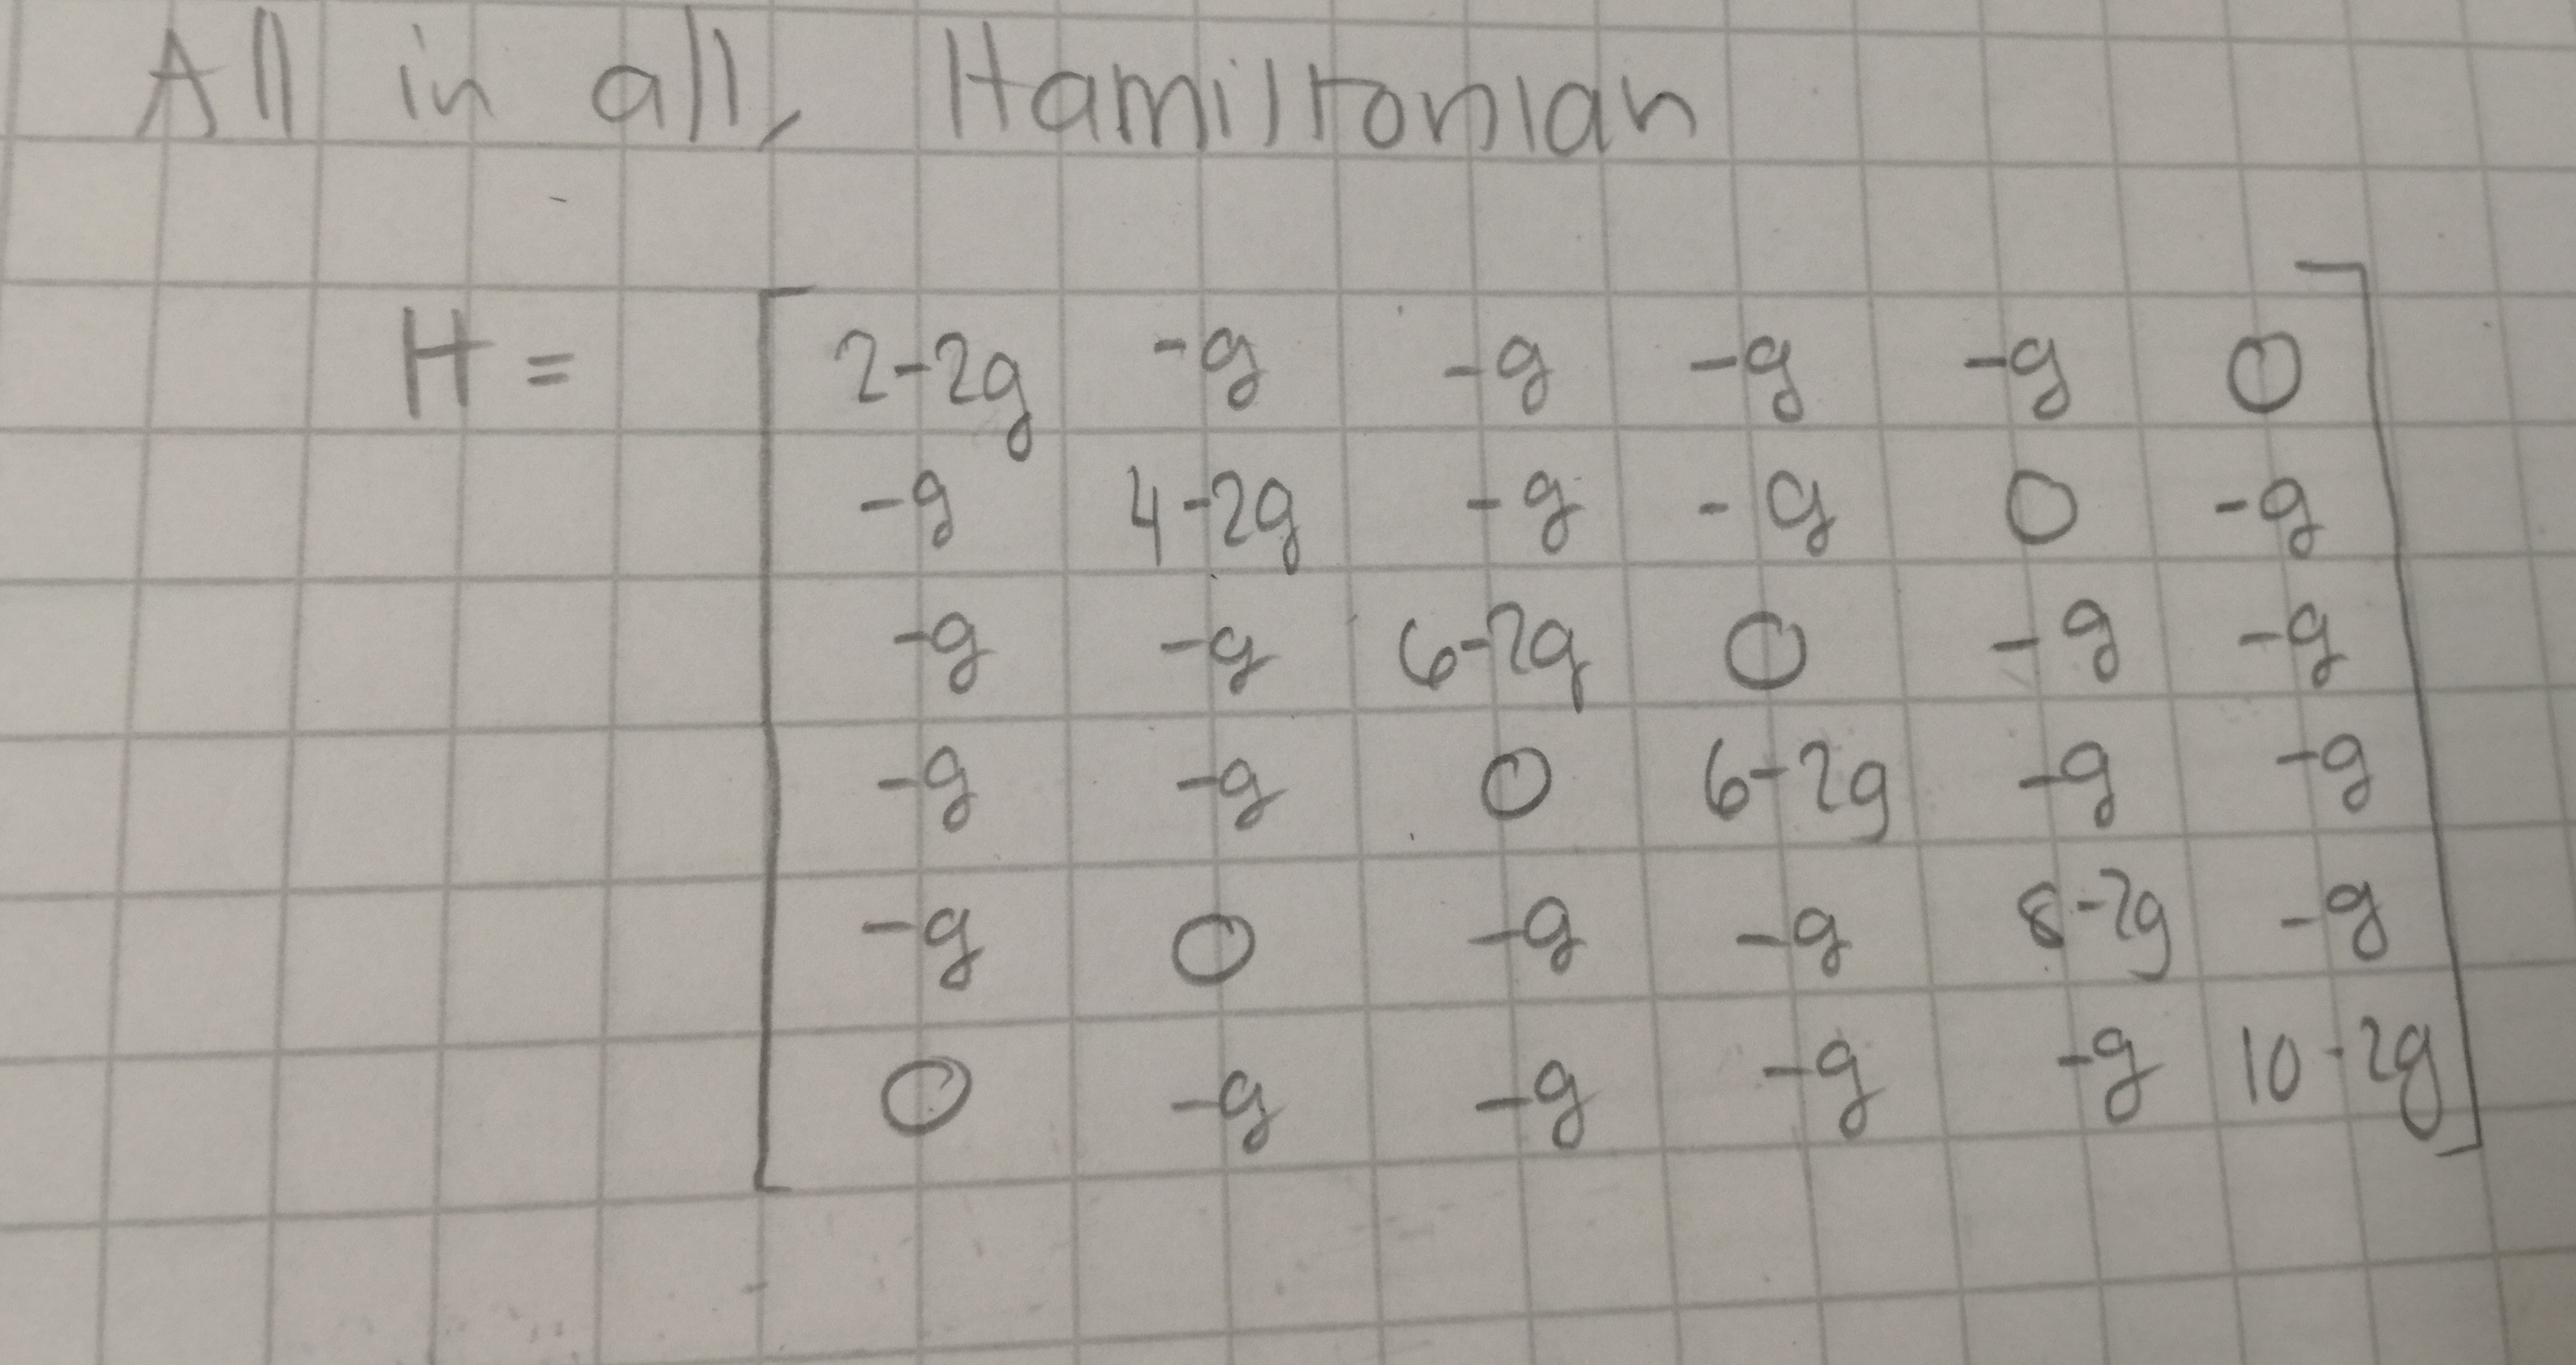 All in all, Hamiltonian
H = [ 2-2g -g -g -g -g 0
-g 4-2g -g -g 0 -g
-g -g 6-2g 0 -g -g
-g -g 0 6-2g -g -g
-g 0 -g -g 8-2g -g
0 -g -g -g -g 10-2g ]